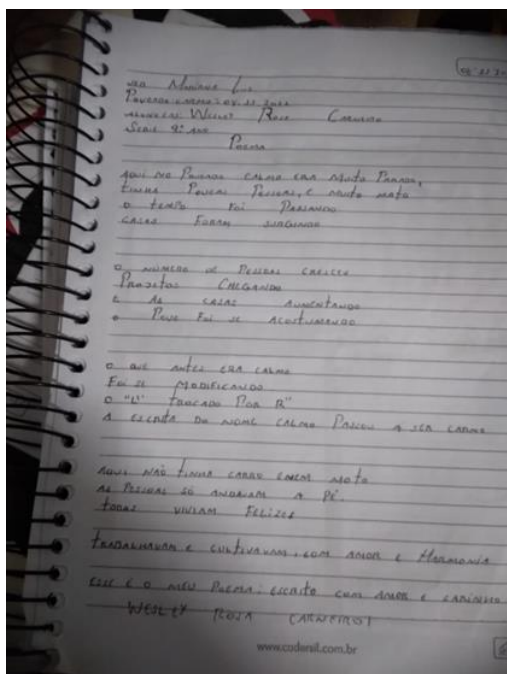 Povoado Carmo: 08.11.2022
Wesley Rosa Carneiro
Serie 9º Ano
Poema
Aqui no Povoado Calmo era muito Parado,
tinha Poucas Pessoas, e muito mato
o tempo foi Passando
casas foram surgindo
o número de Pessoas cresceu
Projetos Chegando
e As casas Aumentando
o Povo Foi se Acostumando
o que antes era calmo
Foi se modificando
o "L" trocado Por R"
A escrita do nome calmo Passou a ser carmo
Aqui não tinha carro e nem moto
As Pessoas só andavam a Pé.
todas viviam Felizes
trabalhavam e cultivavam, com amor e Harmonia
esse é o meu Poema: escrito com amor e carinho
Wesley Rosa Carneiro!
www.coderail.com.br